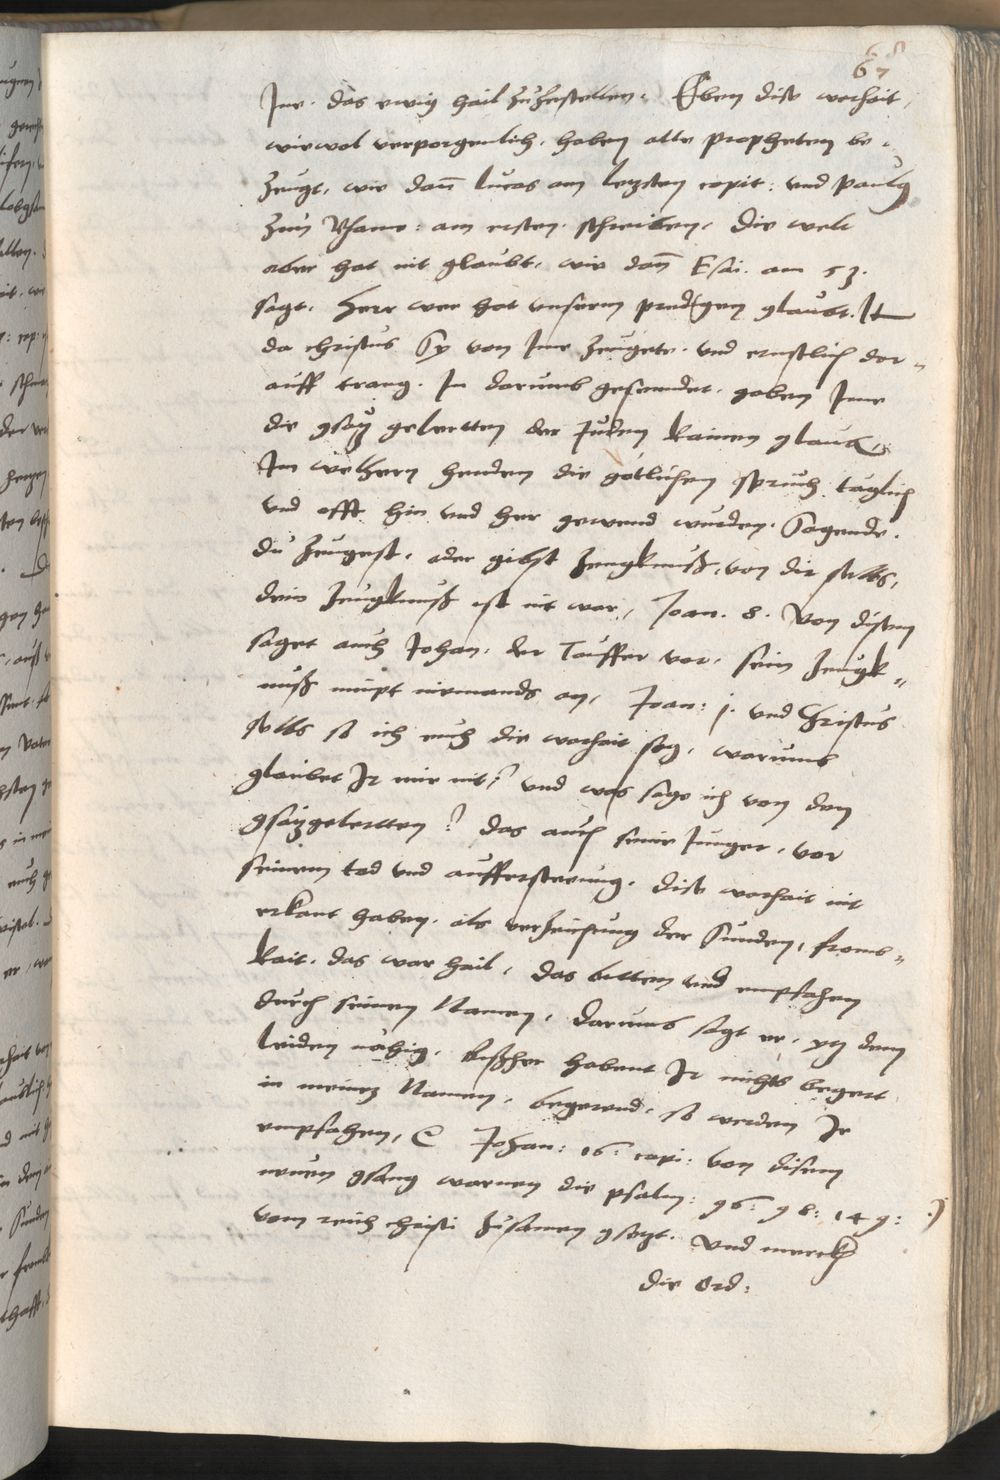 67
Ine. das ewig hail zuzestellen: Eben dise warhait,
wiewol verporgenlich, haben alle propheten be-
zeugt, wie dan̄ lucas am letzsten capit: und paulus
zun Rhame: am ersten schreiben, die welt
aber hat nit glaubt, wie dan̄ Esai. am 53.
sagt. Herr wer hat unserm predigen glaubt. It
da christus sy von Ime zeugete, und ernstlich dar-
auff trang. In darumb gesenndet, gaben Ime
die gsatz gelertten der Juden kainen glaub,
In welhern henden die götlichen spruch täglich
und offt hin und her gewend wurden. Sagende.
du zeugest, oder gibst zeugknuß, von dir selbs,
dein zeugknuß ist nit war, Joan. 8. Von disem
saget auch Johan. der Tauffer vor, sein zeugk-
nuß nimpt niemands an, Joan: j. und Christus
selbs so ich euch die warhait sag, warumb
glaubet Ir mir nit? und was sage ich von den
gsatzgelertten? das auch seine Junger, vor
seinem tod und auffersteeung, dise warhait nit
erkant haben, als verzeihung der Sunden, fromb-
kait, das war hail, das bitten und empfahen
durch seinen Namen, darumb sagt er, yetz dem
leiden nähig, bißher habent Ir nichts begert
in meinem Namen, begerend, so werden Ir
empfahen, Johan: 16: capi: von disem
neuen gsang warnen die psalm: 96: 98: 149:
vom reich christi zusamen gsetzt. Und merck
die Ord: